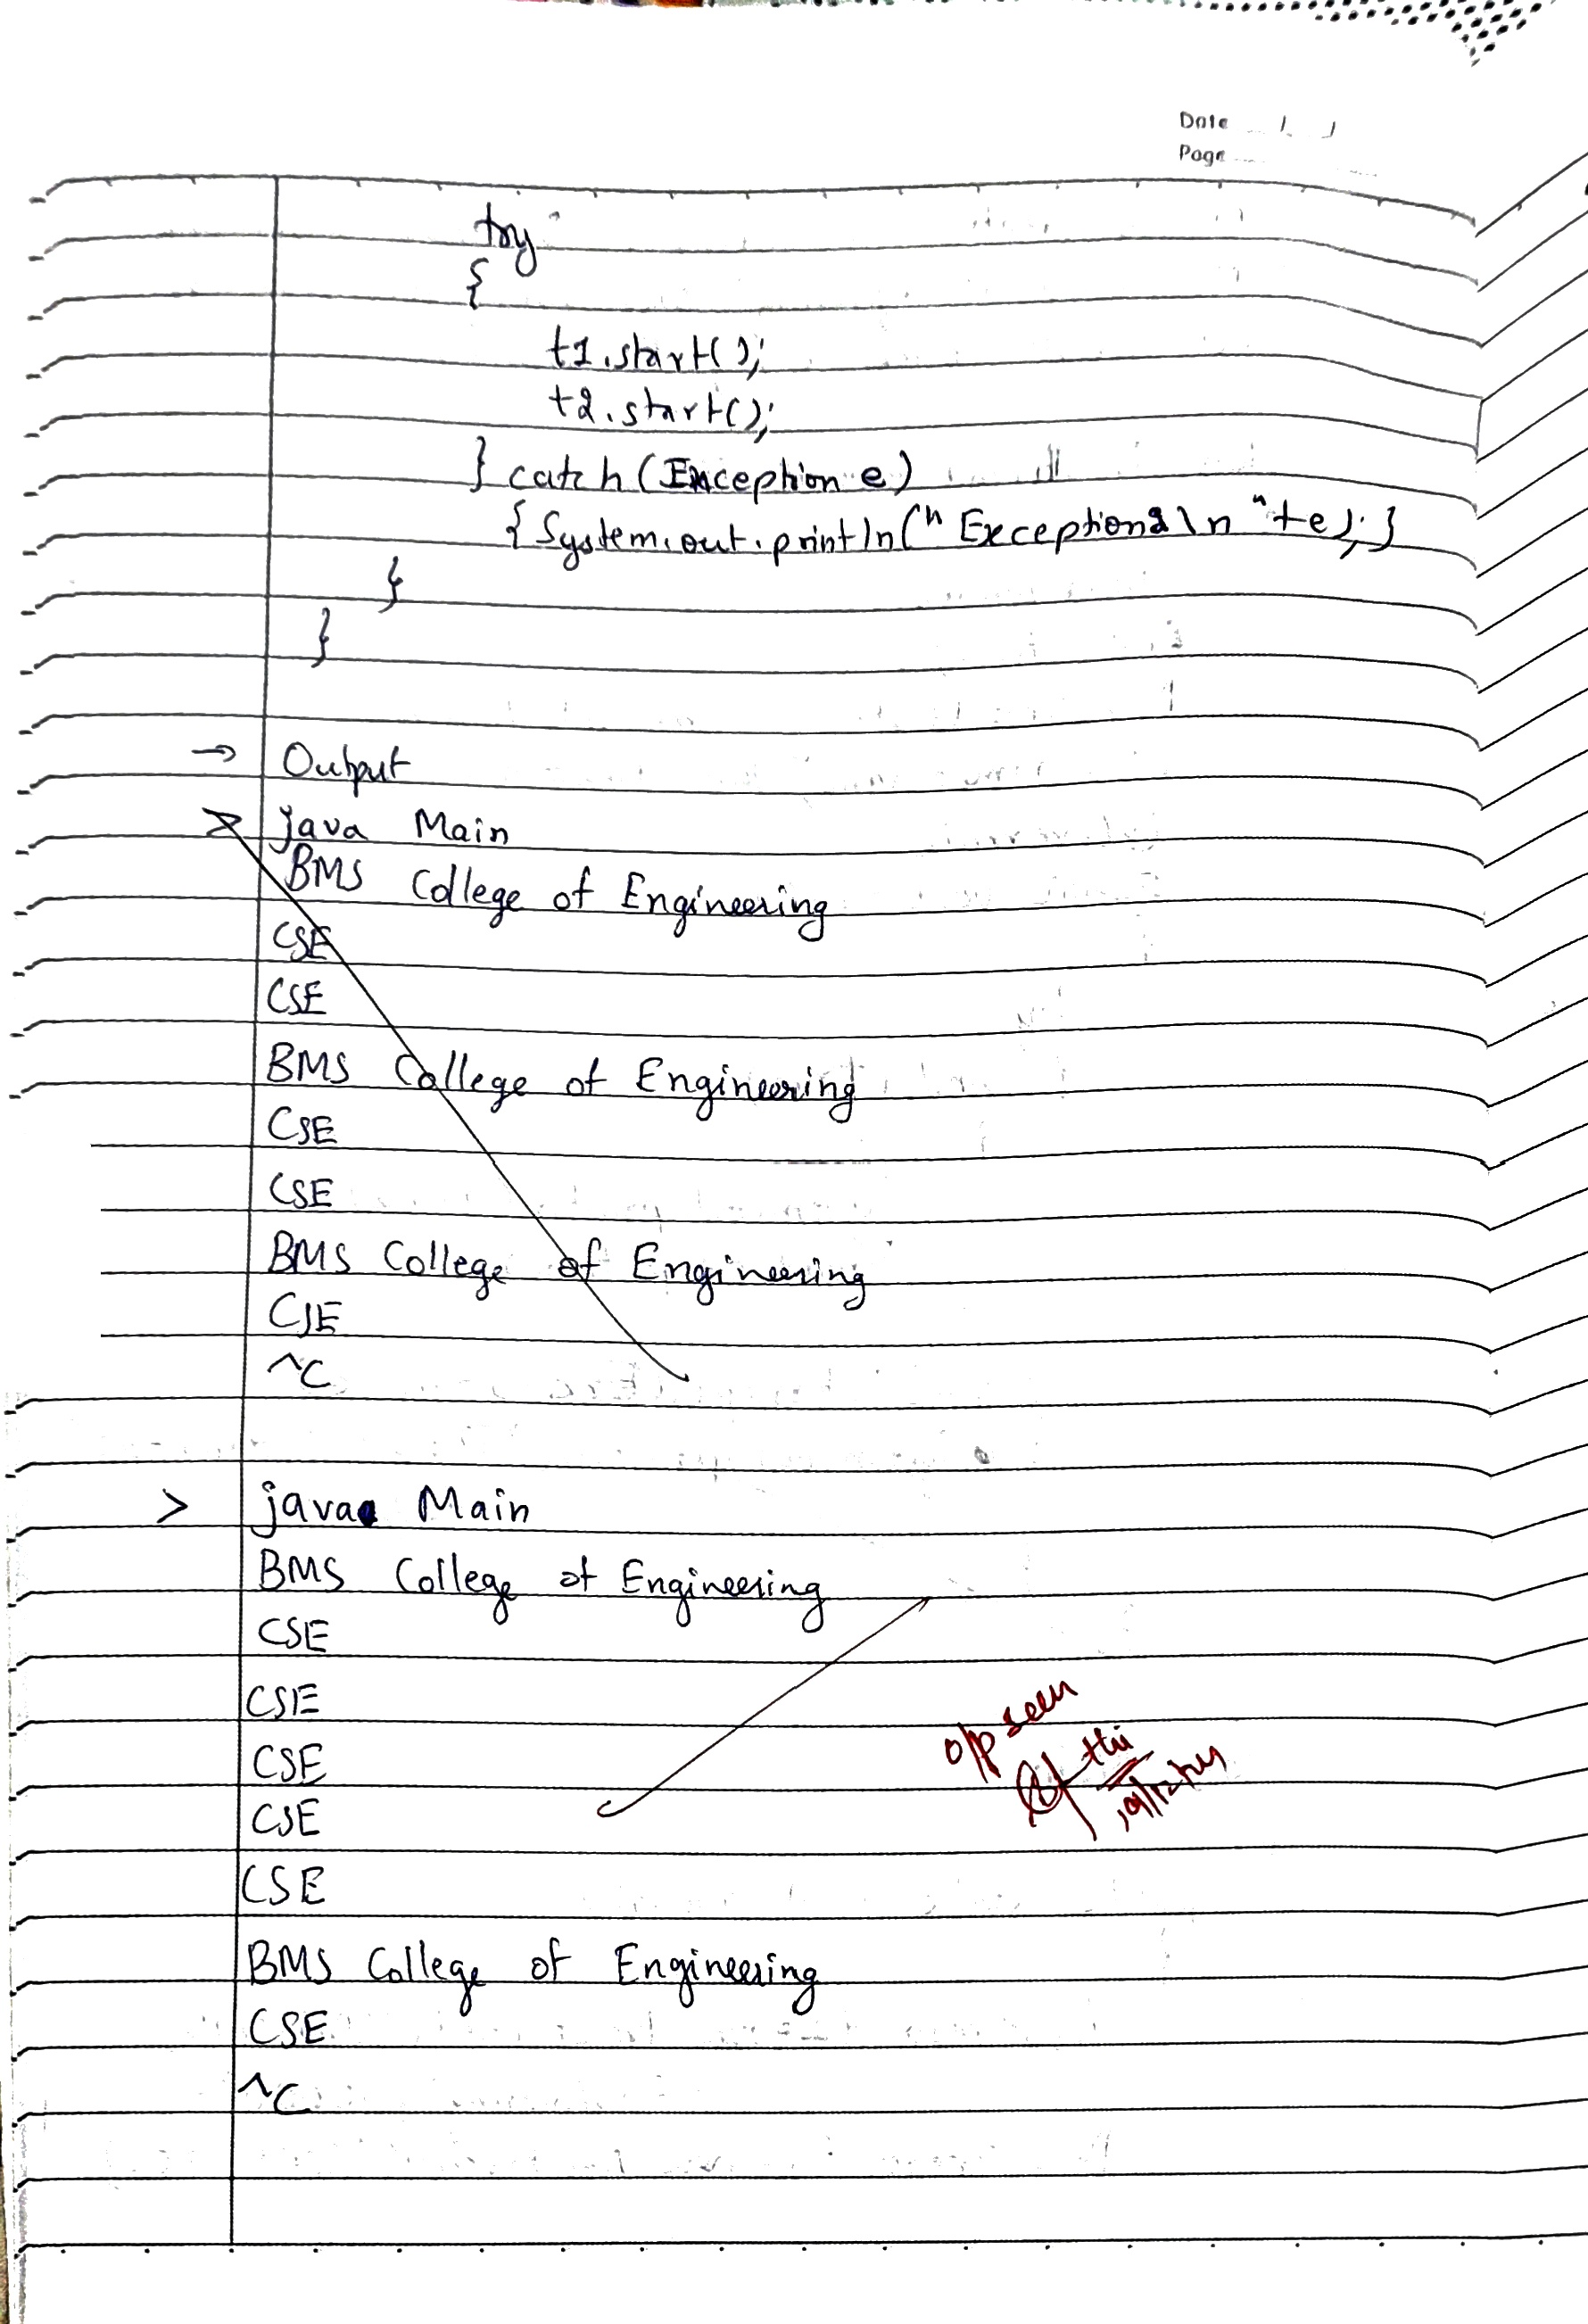 Date
Page
try
{
t1.start();
t2.start();
} catch (Exception e)
{ System.out.println("Exception \n "+e); }
}
}
→ Output
> java Main
BMS College of Engineering
CSE
CSE
BMS College of Engineering
CSE
CSE
BMS College of Engineering
CSE
^C
> java Main
BMS College of Engineering
CSE
CSE
CSE
CSE
CSE
BMS College of Engineering
CSE
^C
o/p seen